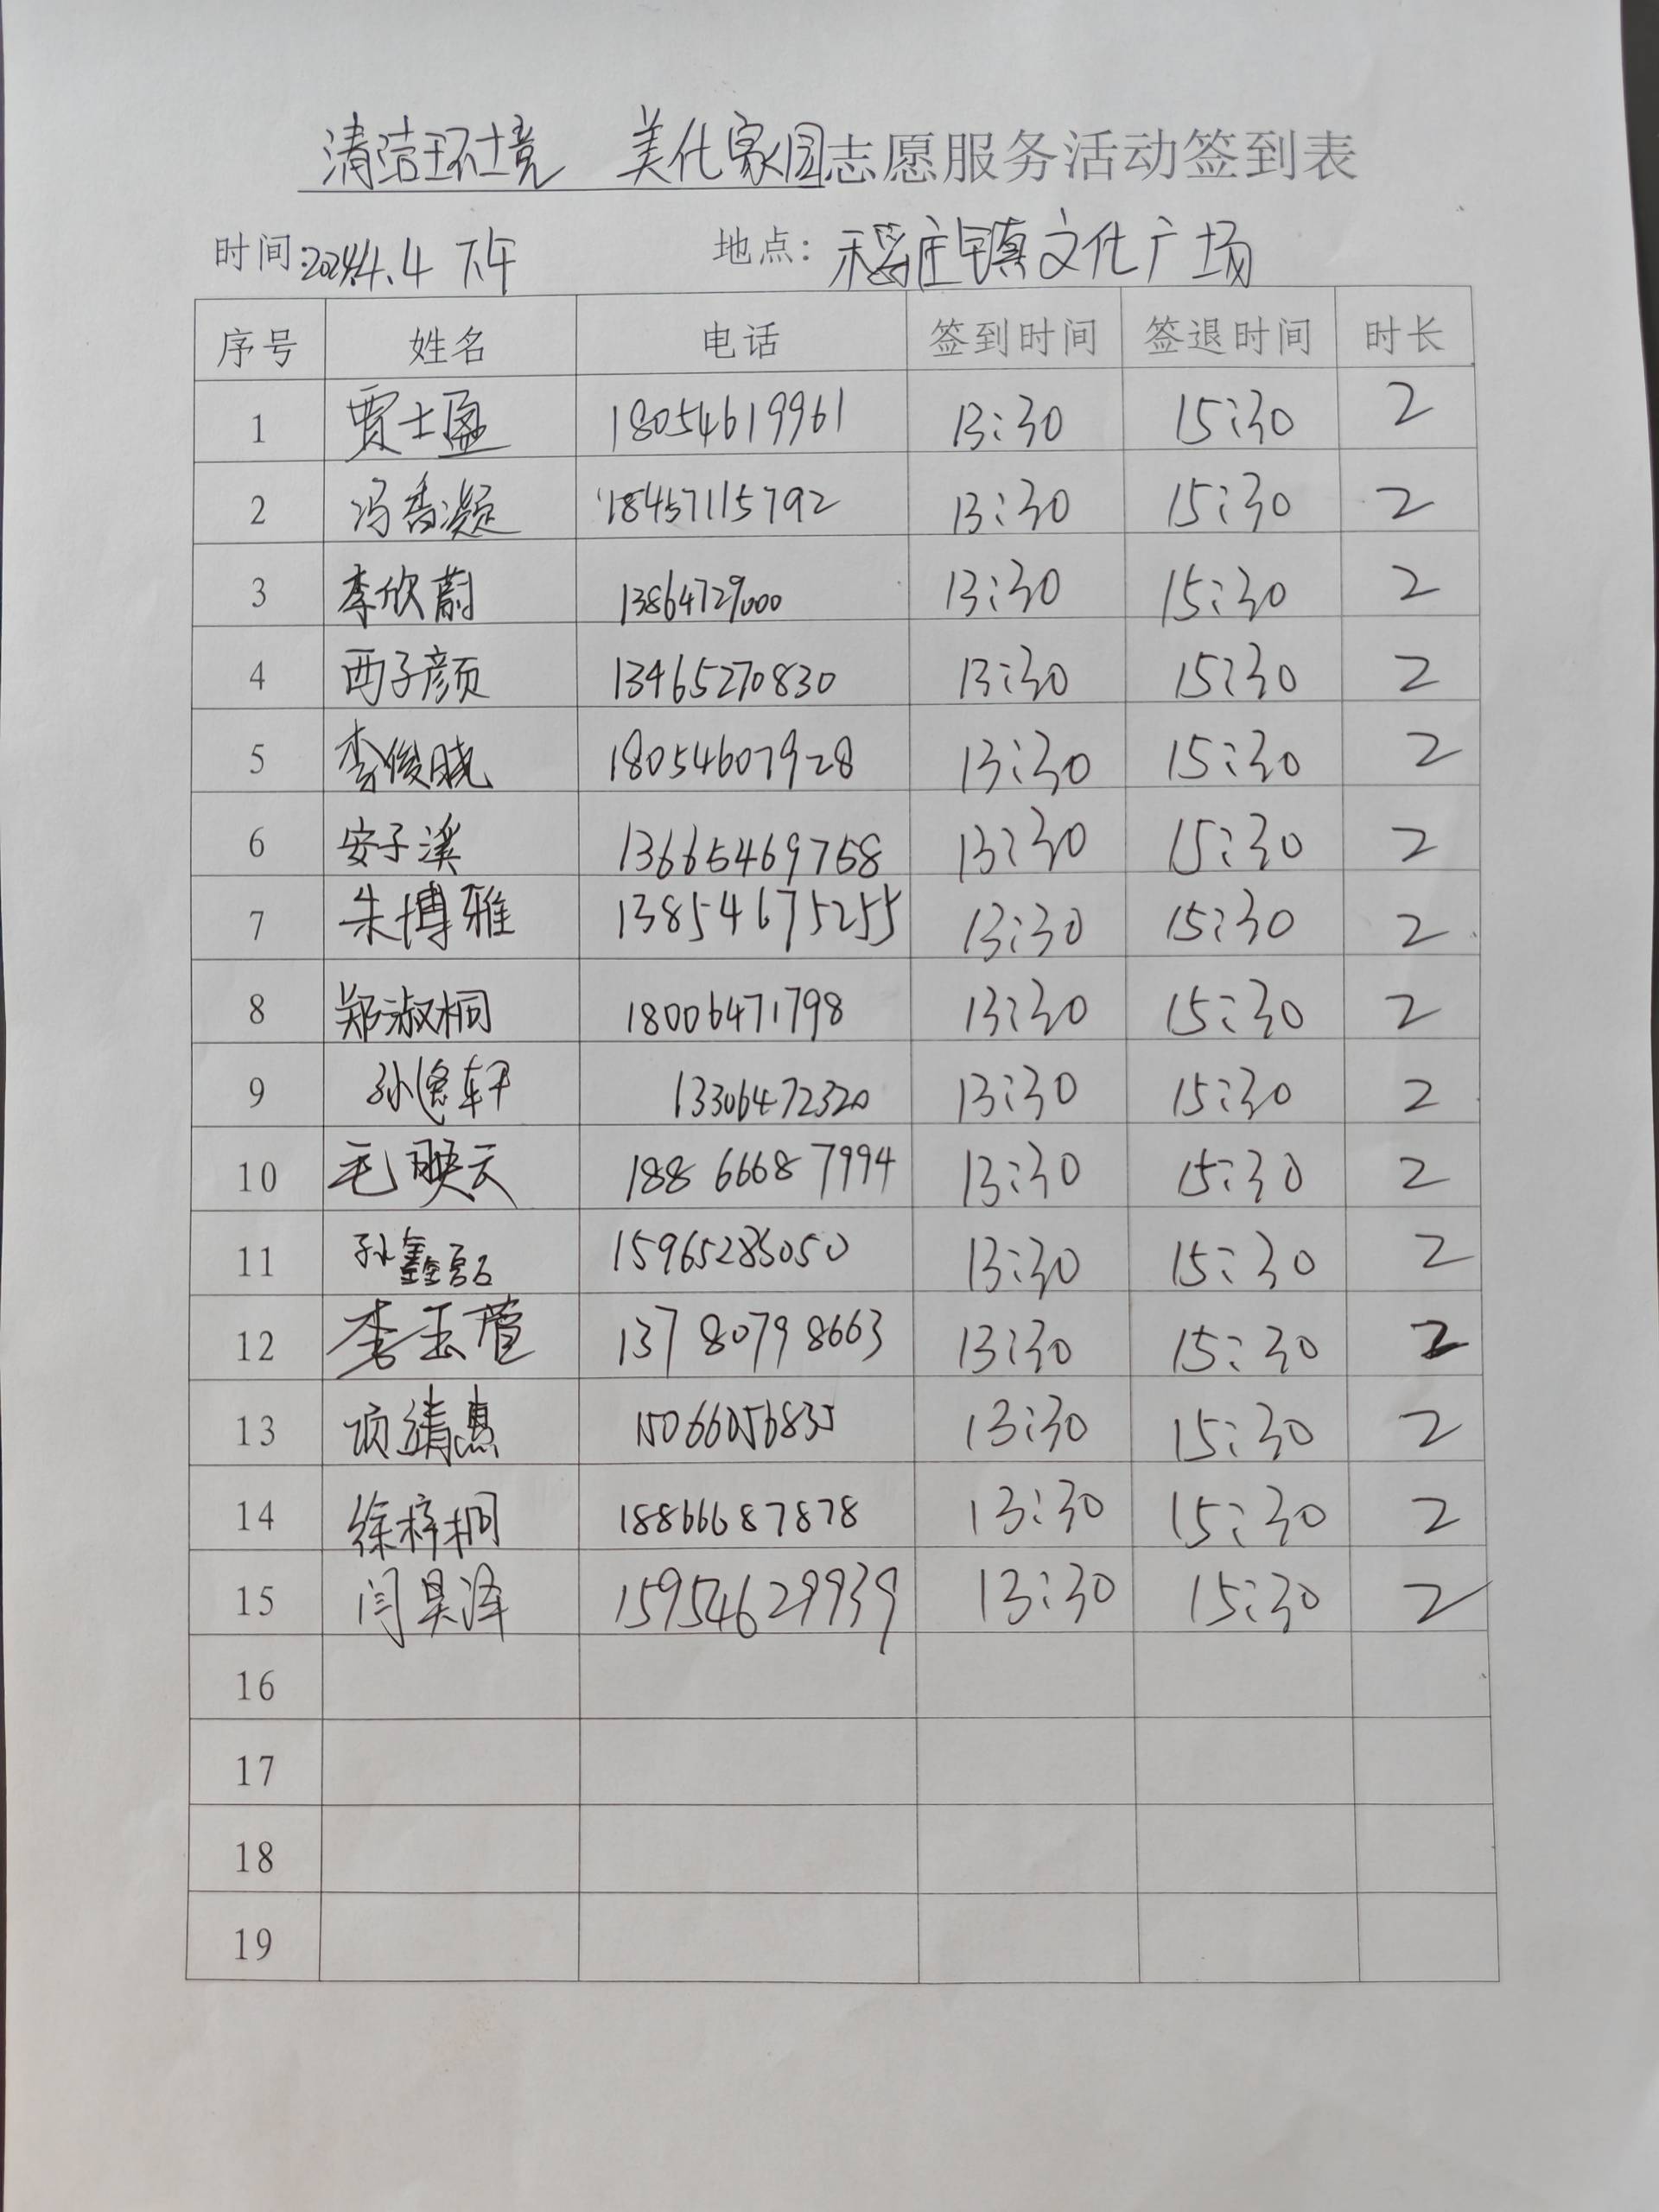 清洁环境 美化家园志愿服务活动签到表
时间:2024.4.4 下午 地点：稻庄镇文化广场
序号 姓名 电话 签到时间 签退时间 时长
1 贾士盈 18054619961 13:30 15:30 2
2 冯香凝 18457115792 13:30 15:30 2
3 李欣蔚 13864729000 13:30 15:30 2
4 西子颜 13465270830 13:30 15:30 2
5 李俊晓 18054607928 13:30 15:30 2
6 安子溪 13665469758 13:30 15:30 2
7 朱博雅 13854675255 13:30 15:30 2
8 郑淑桐 18006471798 13:30 15:30 2
9 13306472320 13:30 15:30 2
10 毛映云 188 6668 7994 13:30 15:30 2
11 孙鑫磊 15965283050 13:30 15:30 2
12 李玉萱 137 8079 8663 13:30 15:30 2
13 项婧惠 15066056835 13:30 15:30 2
14 徐梓桐 18866687878 13:30 15:30 2
15 闫昊泽 15954629939 13:30 15:30 2
16
17
18
19